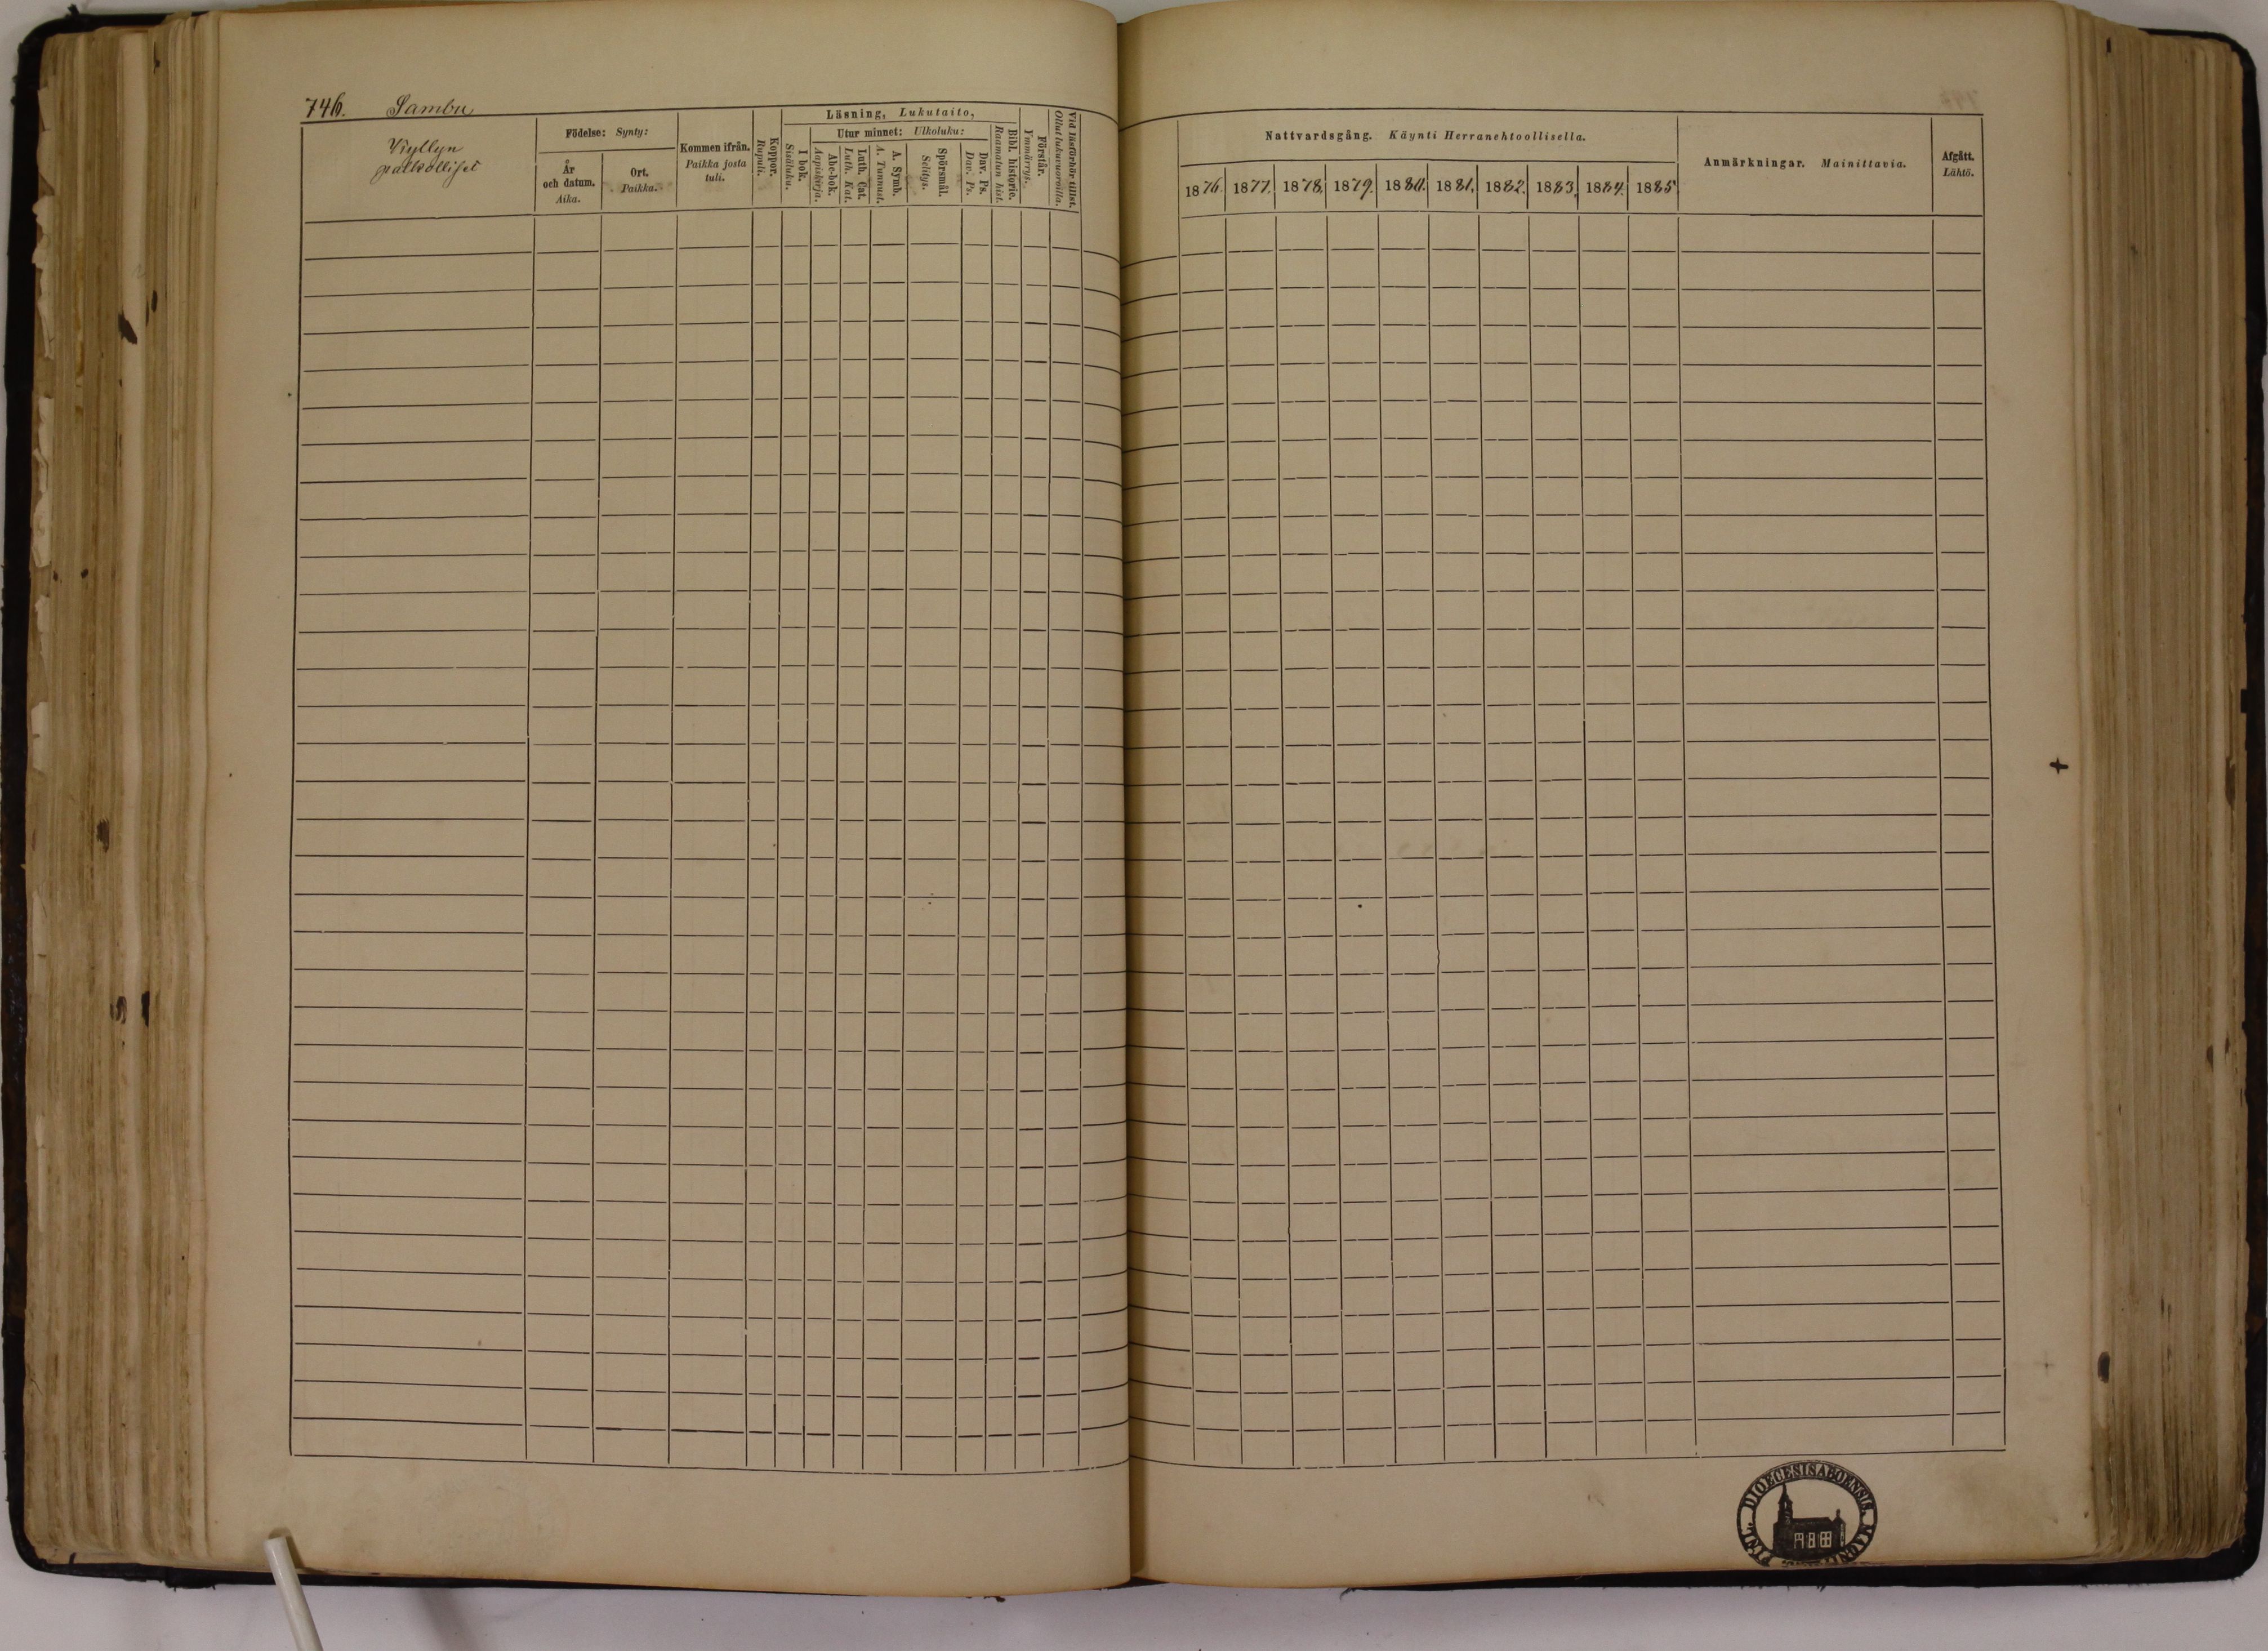 746. Sambu
Wyllyn
palkolliset
Födelse: Synty:
År
och datum.
Aika.
Ort.
Paikka.
Kommen ifrån.
Paikka josta
tuli.
Koppor.
Rupuli.
Läsning, Lukutaito,
I bok.
Sisäluku.
Utur minnet: Ulkoluku:
Abc-bok.
Aapiskirja.
Luth. Cat.
Luth. Kat.
A. Symb.
A. Tunnust.
Spörsmål.
Selitys.
Dav. Ps.
Dav. Ps.
Bibl. historie.
Raamatun hist.
Förstår.
Ymmärrys.
Vid läsförhör tillst.
Ollut lukuvuoroilla.
Nattvardsgång. Käynti Herranehtoollisella.
1876. 1877. 1878. 1879. 1880. 1881. 1882. 1883. 1884. 1885
Anmärkningar. Mainittavia.
Afgått.
Lähtö.
DIOECESIS ABOENSIS